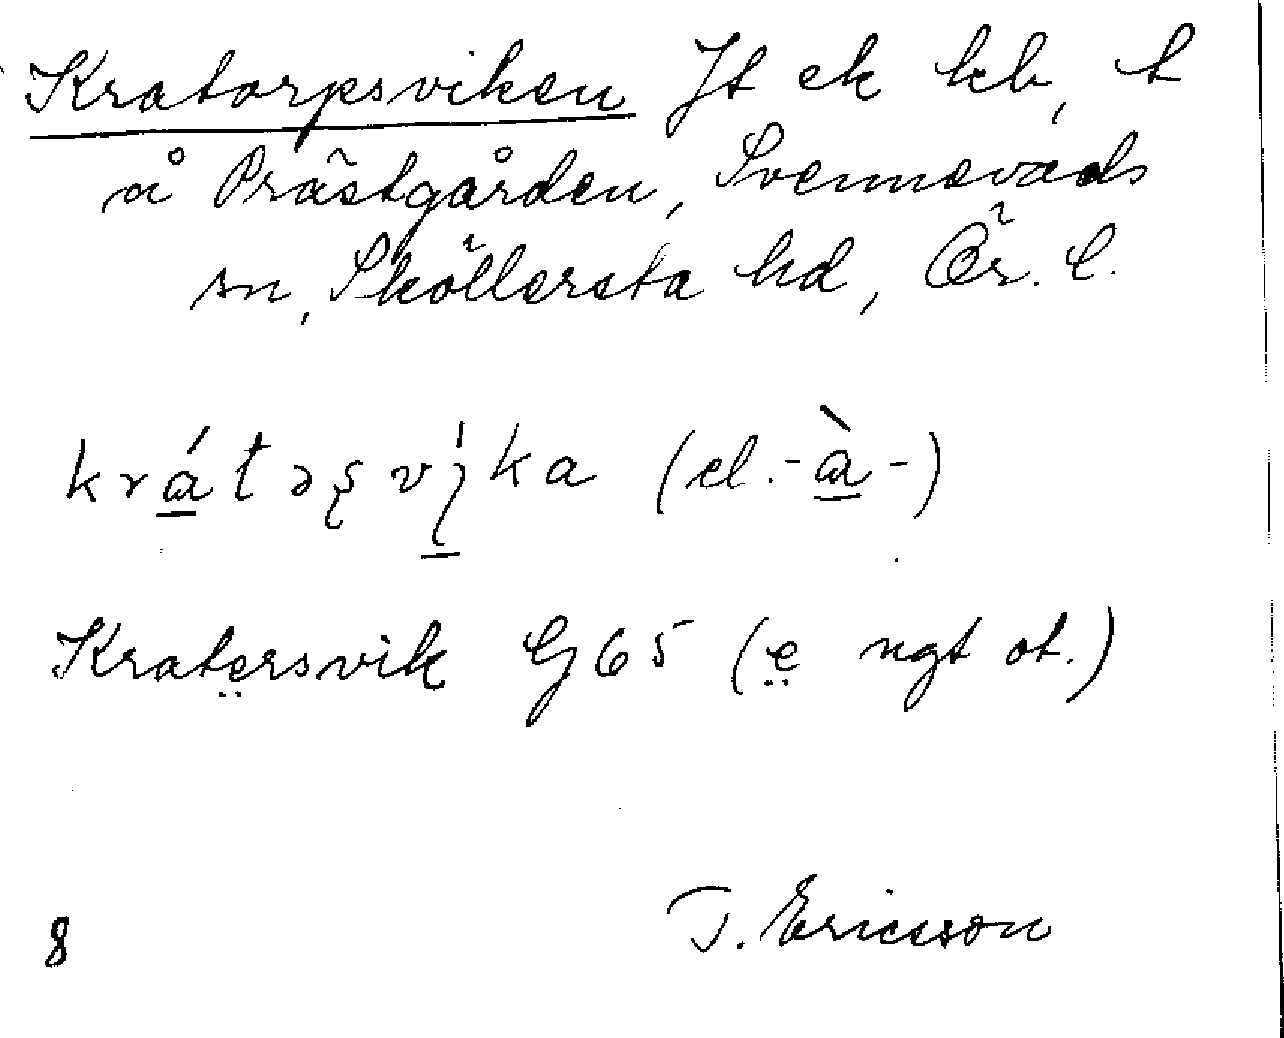 Kratorpsviken Jt ek kb, t
å Prästgården, Svennevads
sn, Sköllersta hd, Ör. l.
krátəs̨vı̨́ka (el. -à-)
Kratersvik G65 (e̤ ngt ot.)
8 T. Ericsson